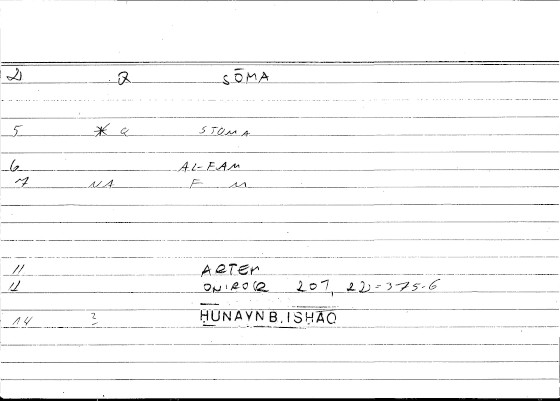 2 Q SŌMA
5 * Q STOMA
6 AL-FAM
7 NA F M
11 ARTEM
12 ONIROCR 207, 22=375-6
14 2 HUNAYN B. ISHAQ